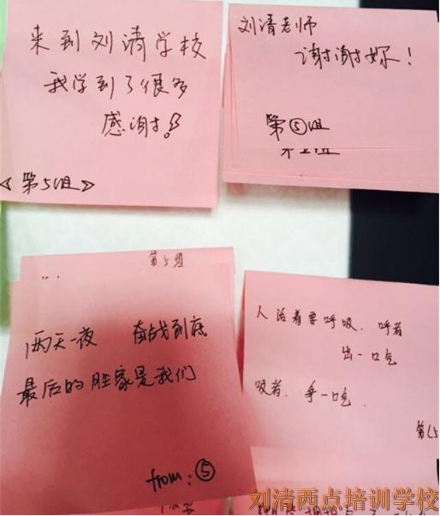 来到刘清学校
我学到了很多
感谢!!
《第5组》
刘清老师
谢谢妳!
第⑤组
第5组
两天一夜 奋战到底
最后的胜家是我们
from:⑤
人活着要呼吸.呼着
出一口气
吸着.争一口气.
刘清西点培训学校